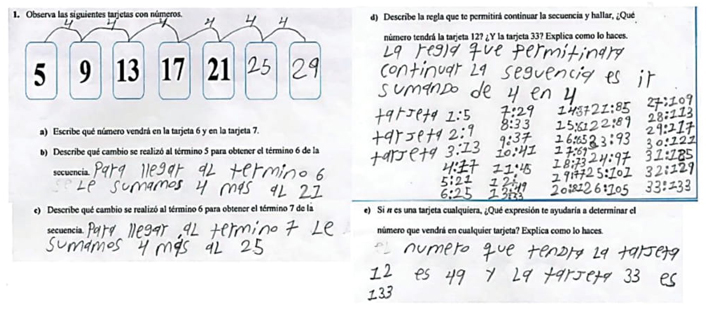 1. Observa las siguientes tarjetas con números.
4 4 4 4 4 4
5 9 13 17 21 25 29
a) Escribe qué número vendrá en la tarjeta 6 y en la tarjeta 7.
b) Describe qué cambio se realizó al término 5 para obtener el término 6 de la
secuencia. Para llegar al termino 6
Le sumamos 4 más al 21
c) Describe qué cambio se realizó al término 6 para obtener el término 7 de la
secuencia. Para llegar al termino 7 Le
sumamos 4 más al 25
d) Describe la regla que te permitirá continuar la secuencia y hallar, ¿Qué
número tendrá la tarjeta 12? ¿Y la tarjeta 33? Explica como lo haces.
La regla que permitinara
continuar La seguencia es ir
sumando de 4 en 4
tarjeta 1:5
tarjeta 2:9
tarjeta 3:13
4:17
5:21
6:25
7:29
8:33
9:37
10:41
11:45
21:85
22:89
23:93
24:97
25:101
26:105
27:109
28:113
29:117
30:121
32:129
33:133
e) Si n es una tarjeta cualquiera, ¿Qué expresión te ayudaría a determinar el
número que vendrá en cualquier tarjeta? Explica como lo haces.
numero que tendra la tarjeta
12 es 49 y La tarjeta 33 es
133